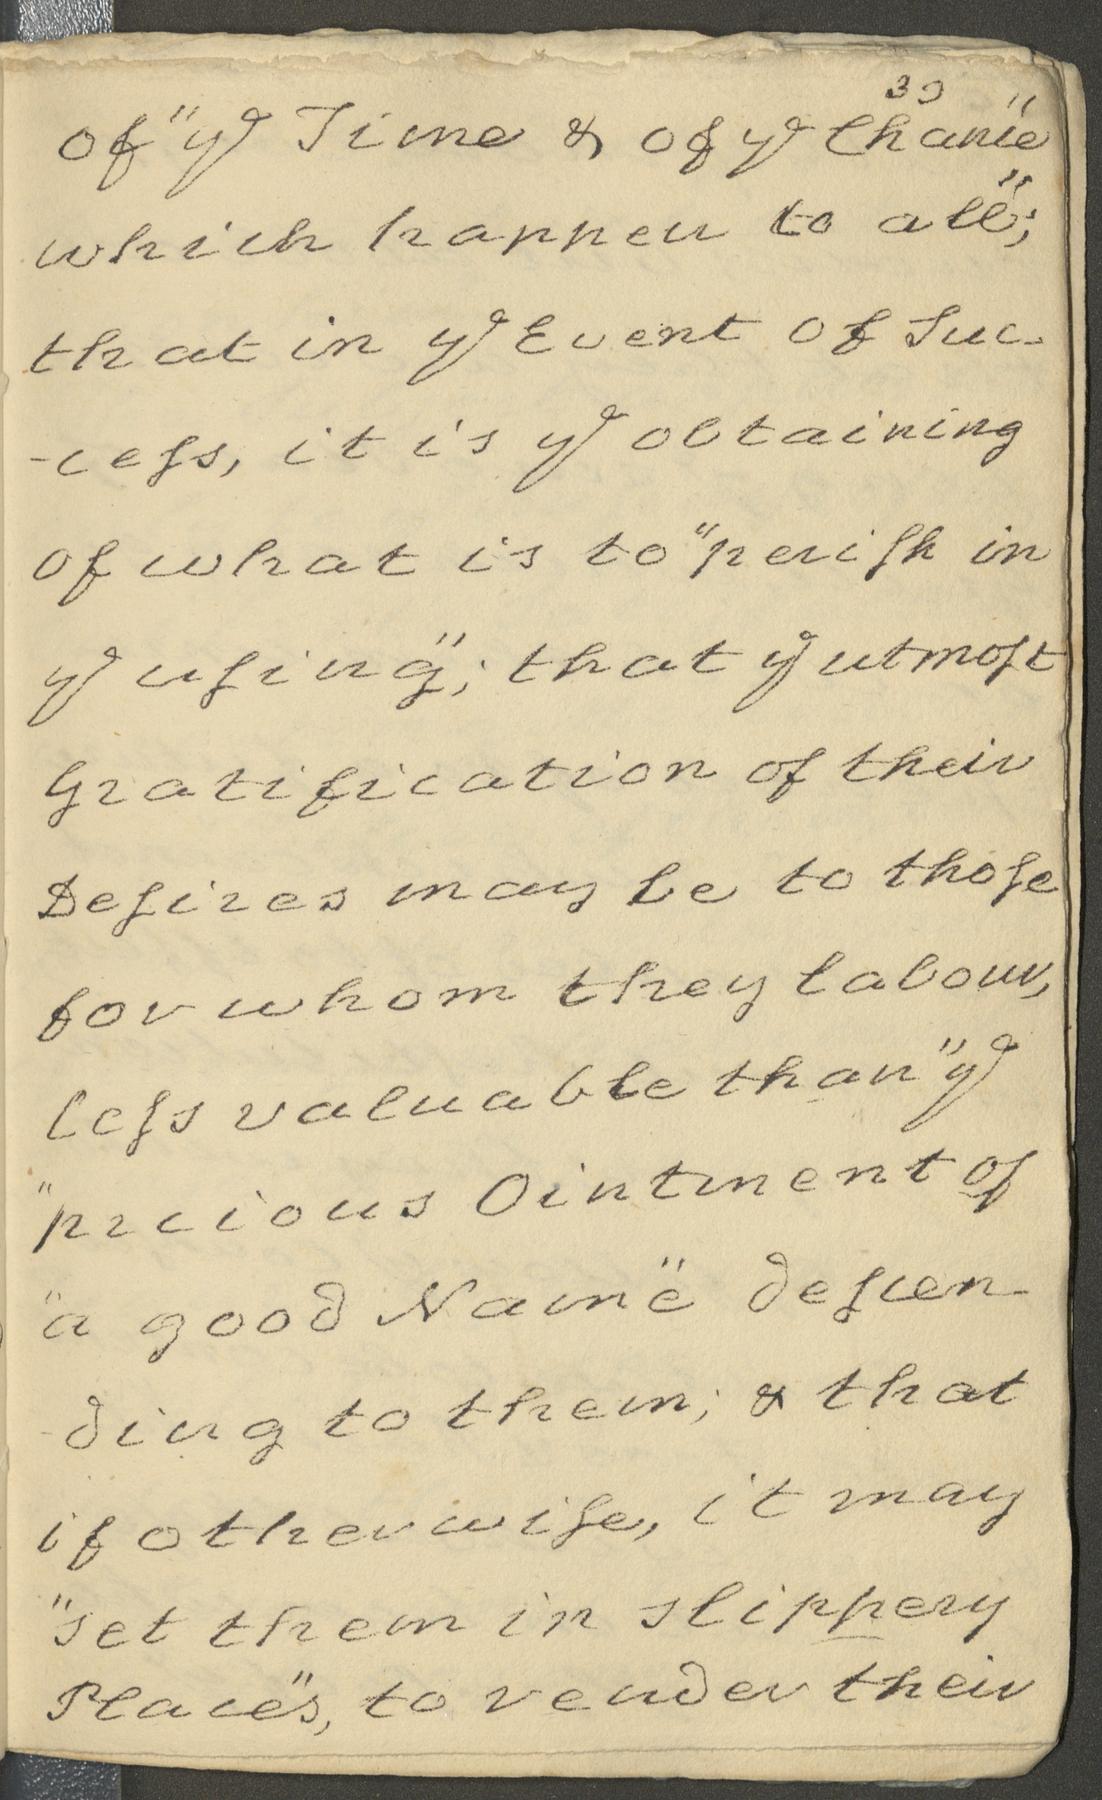 39
of "yᵉ Time & of yᵉ Chance"
which happen to all";
that in yᵉ Event of Suc-
-ceſs, it is yᵉ obtaining
of what is to "periſh in
yᵉ uſing"; that yᵉ utmoſt
Gratification of their
Deſires may be to thoſe
for whom they labour,
leſs valuable than "yᵉ
"precious Ointment of
"a good Name" deſcen-
-ding to them; & that
if otherwiſe, it may
"set them in slippery
Places", to render their